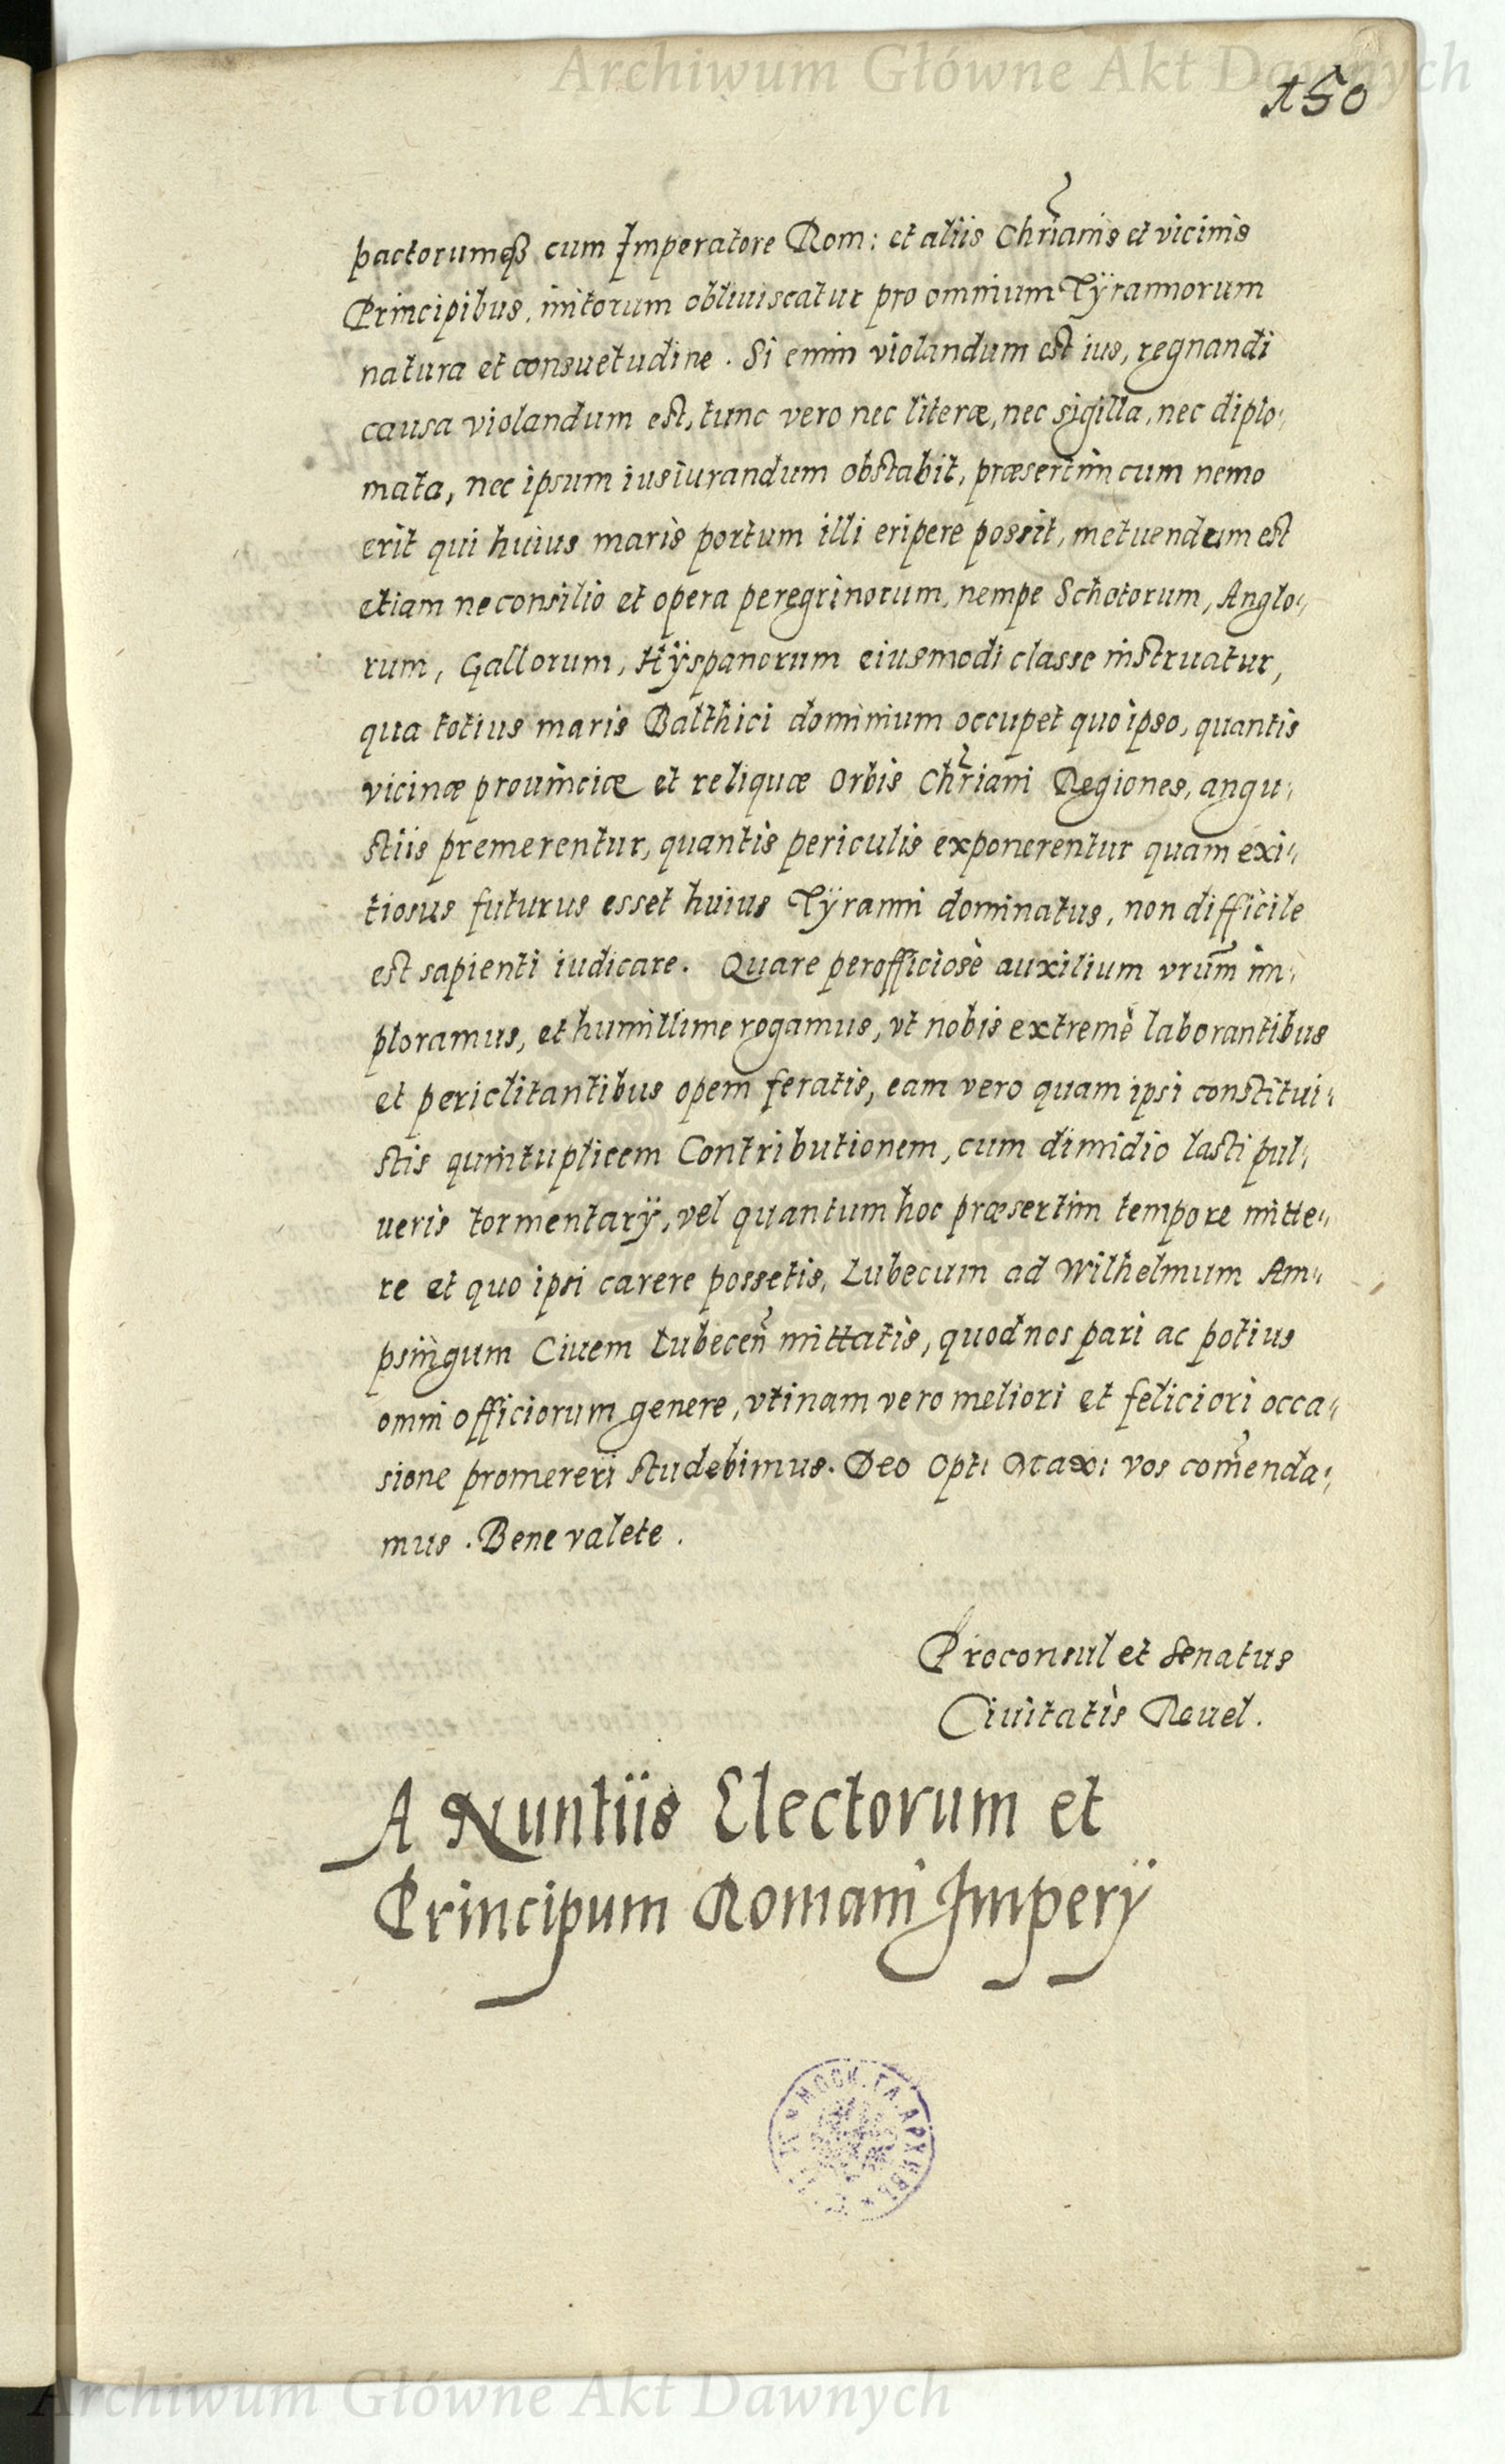 Archiwum Główne Akt Dawnych
150
pactorumq̃ cum Imperatore Rom: et aliis Chr̃ianis et vicinis
Principibus, initorum obliuiscatur pro omnium Tÿrannorum
natura et consuetudine. Si enim violandum est ius, regnandi
causa violandum est, tunc vero nec literæ, nec sigilla, nec diplo„
mata, nec ipsum iusiurandum obstabit, præsertim cum nemo
erit qui huius maris portum illi eripere possit, metuendum est
etiam ne consilio et opera peregrinorum, nempe Schotorum, Anglo„
rum, Gallorum, Hÿspanorum eiusmodi classe instruatur,
qua totius maris Balthici dominium occupet quo ipso, quantis
vicinæ prouinciæ et reliquæ Orbis Chr̃iani Regiones, angu„
stiis premerentur, quantis periculis exponerentur quam exi„
tiosus futurus esset huius Tÿranni dominatus, non difficile
est sapienti iudicare. Quare perofficiosè auxilium vrũm im„
ploramus, et humillime rogamus, vt nobis extremè laborantibus
et periclitantibus opem feratis, eam vero quam ipsi constitui„
stis quintuplicem Contributionem, cum dimidio lasti pul„
ueris tormentarÿ, vel quantum hoc præsertim tempore mitte„
re et quo ipsi carere possetis, Lubecum ad Wilhelmum Am„
psingum Ciuem Lubeceñ mittatis, quod nos pari ac potius
omni officiorum genere, vtinam vero meliori et feliciori occa„
sione promereri studebimus. Deo Opt: Max: vos com̃enda„
mus. Bene valete.
Proconsul et Senatus
Ciuitatis Reuel.
A Nuntiis Electorum et
Principum Romani Imperÿ
МОСК. ГЛ. АРХИВЪ
Archiwum Główne Akt Dawnych